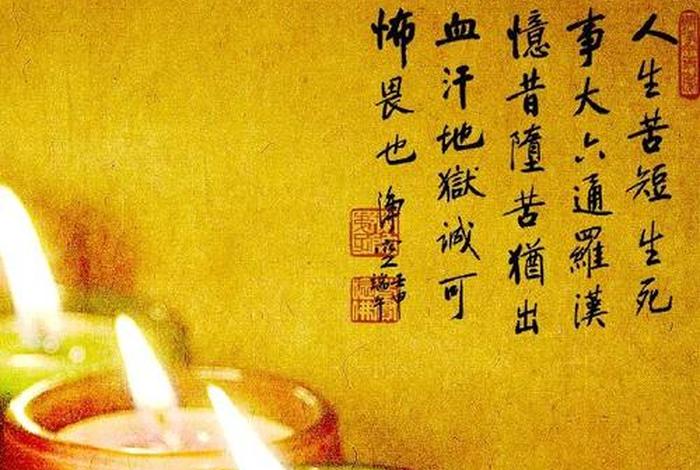 人生苦短生死
事大六通羅漢
憶昔墮苦猶出
血汗地獄誠可
怖畏也
淨空
壬申
端午